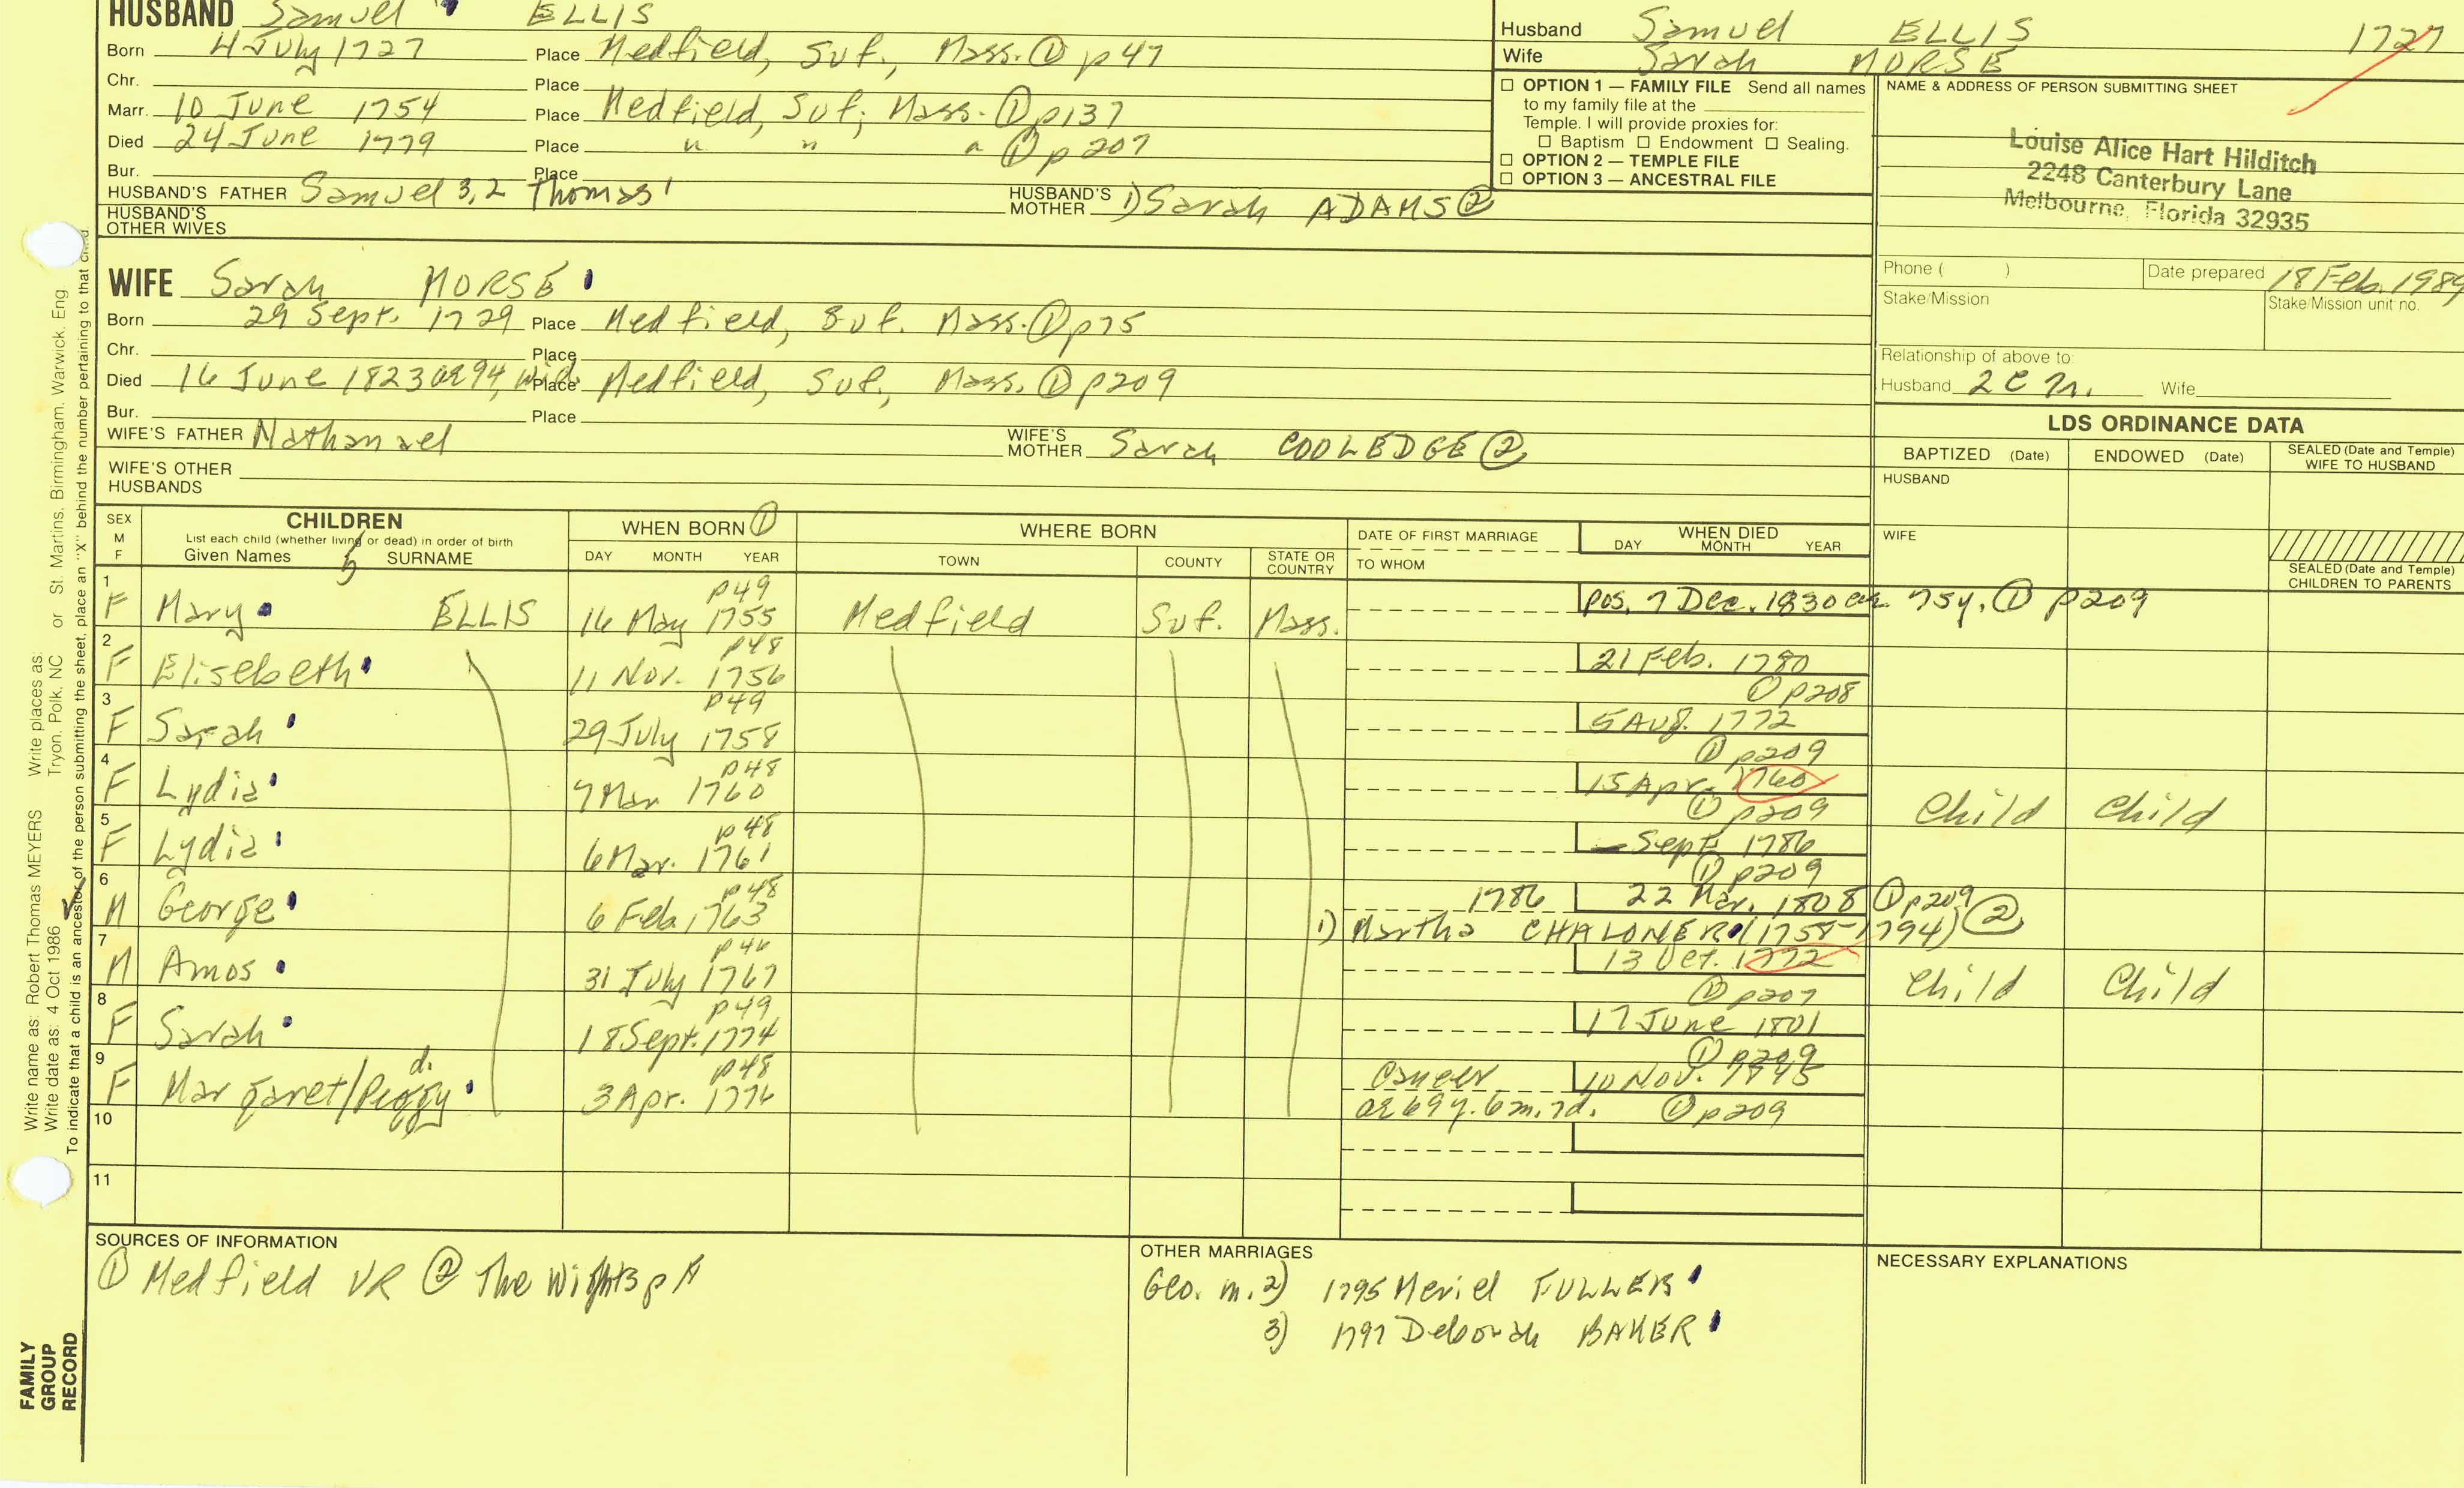 HUSBAND Samuel ELLIS
Born 4 July 1727 Place Medfield, Suf., Mass. ① p47
Chr. Place
Marr. 10 June 1754 Place Medfield, Suf, Mass. ① p137
Died 24 June 1779 Place " " " ① p207
Bur. Place
HUSBAND'S FATHER Samuel 3,2 Thomas 1 HUSBAND'S MOTHER 1) Sarah ADAMS ②
HUSBAND'S OTHER WIVES
WIFE Sarah MORSE
Born 29 Sept. 1729 Place Medfield, Suf. Mass. ① p75
Chr. Place
Died 16 June 1823 ae 94, wid. Place Medfield, Suf., Mass. ① p209
Bur. Place
WIFE'S FATHER Nathanael WIFE'S MOTHER Sarah COOLEDGE ②
WIFE'S OTHER HUSBANDS
Husband Samuel ELLIS 1727
Wife Sarah MORSE
☐ OPTION 1 — FAMILY FILE Send all names
to my family file at the
Temple. I will provide proxies for:
☐ Baptism ☐ Endowment ☐ Sealing.
☐ OPTION 2 — TEMPLE FILE
☐ OPTION 3 — ANCESTRAL FILE
NAME & ADDRESS OF PERSON SUBMITTING SHEET
Louise Alice Hart Hilditch
2248 Canterbury Lane
Melbourne, Florida 32935
Phone ( ) Date prepared 18 Feb. 1989
Stake/Mission Stake/Mission unit no.
Relationship of above to:
Husband 2c n. Wife
LDS ORDINANCE DATA
BAPTIZED (Date) ENDOWED (Date) SEALED (Date and Temple) WIFE TO HUSBAND
HUSBAND
WIFE
SEALED (Date and Temple) CHILDREN TO PARENTS
SEX M F
CHILDREN
List each child (whether living or dead) in order of birth
Given Names 5 SURNAME
WHEN BORN ①
DAY MONTH YEAR
WHERE BORN
TOWN COUNTY STATE OR COUNTRY
DATE OF FIRST MARRIAGE
TO WHOM
WHEN DIED
DAY MONTH YEAR
1 F Mary ELLIS p49 16 May 1755 Medfield Suf. Mass. pos. 7 Dec. 1830 ae 75y. ① p209
2 F Elisebeth p48 11 Nov. 1756 21 Feb. 1780 ① p208
3 F Sarah p49 29 July 1758 5 Aug. 1772 ① p209
4 F Lydia p48 7 Mar 1760 15 Apr. 1760 ① p209 Child Child
5 F Lydia p48 6 Mar. 1761 — Sept. 1786 ① p209
6 M George p48 6 Feb. 1763 1786 22 Mar. 1808 ① p209
1) Martha CHALONER (1758-1794) ②
7 M Amos p46 31 July 1767 13 Oct. 1772 ① p207 Child Child
8 F Sarah p49 18 Sept. 1774 17 June 1801 ① p209
9 F Margaret/Peggy d. p48 3 Apr. 1776 Cancer 10 Nov. 1845
ae 69y. 6m. 7d. ① p209
10
11
SOURCES OF INFORMATION
① Medfield VR ② The Wights p
OTHER MARRIAGES
Geo. m. 2) 1795 Meriel FULLER
3) 1797 Deborah BAKER
NECESSARY EXPLANATIONS
Write name as: Robert Thomas MEYERS Write places as: St. Martins, Birmingham, Warwick, Eng
Write date as: 4 Oct 1986 Tryon, Polk, NC or
To indicate that a child is an ancestor of the person submitting the sheet, place an "X" behind the number pertaining to that child.
FAMILY
GROUP
RECORD